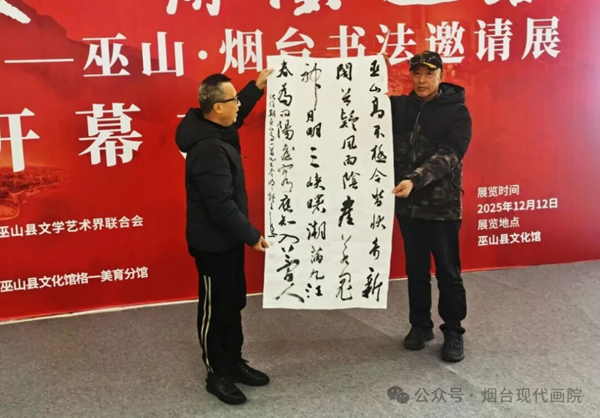 ——巫山·烟台书法邀请展
开幕
巫山县文学艺术界联合会
巫山县文化馆格一美育分馆
展览时间
2025年12月12日
展览地点
巫山县文化馆
巫山高不極合沓狀奇新
闇谷疑風雨陰崖若鬼
神月明三峽曙潮滿九江
春為問陽臺客應知入夢人
公众号·烟台现代画院